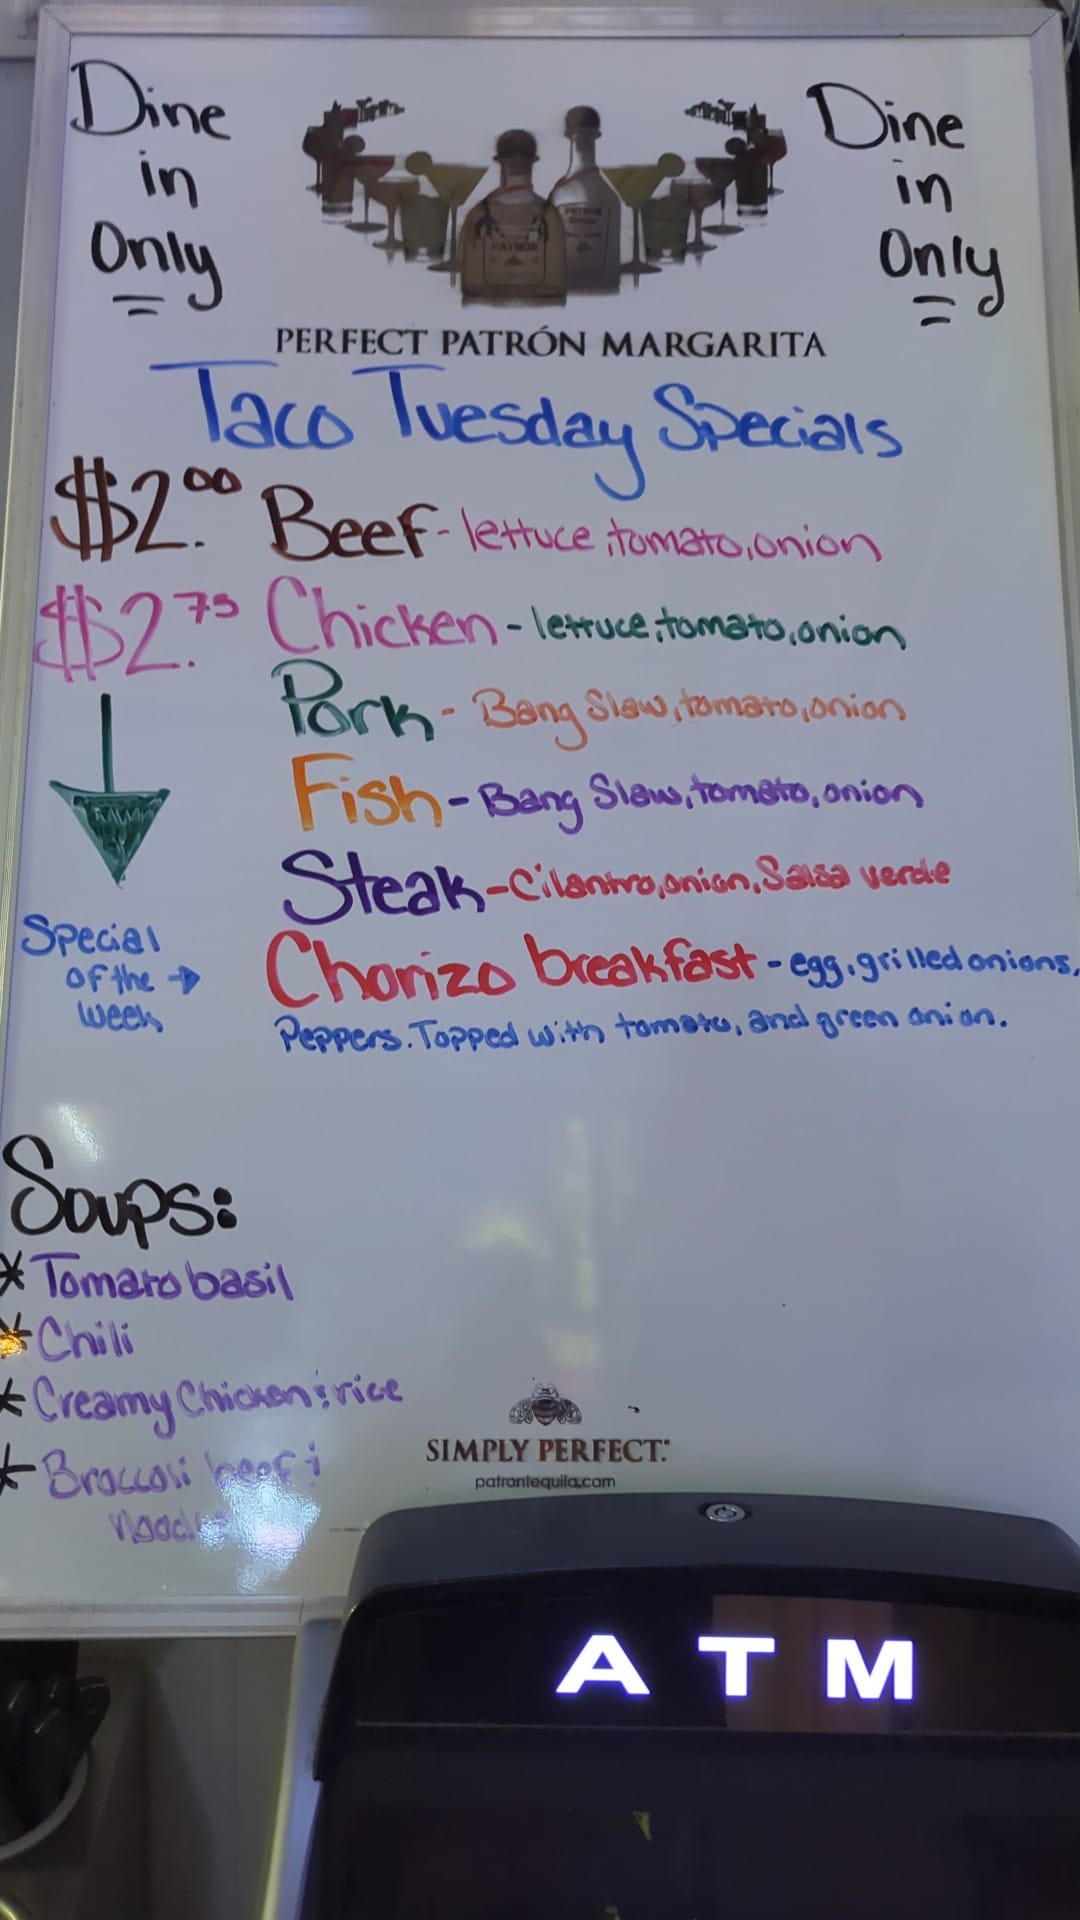 Dine
in
Only
Dine
in
Only
PATRÓN
PATRÓN
PERFECT PATRÓN MARGARITA
Taco Tuesday Specials
$2.00 Beef - lettuce, tomato, onion
$2.75 Chicken - lettuce, tomato, onion
Pork - Bang Slaw, tomato, onion
Fish - Bang Slaw, tomato, onion
Steak - Cilantro, onion, Salsa verde
Special
of the →
week
Chorizo breakfast - egg, grilled onions,
Peppers. Topped with tomato, and green onion.
Soups:
* Tomato basil
* Chili
* Creamy Chicken & rice
* Broccoli beef &
SIMPLY PERFECT.
patrontequila.com
ATM